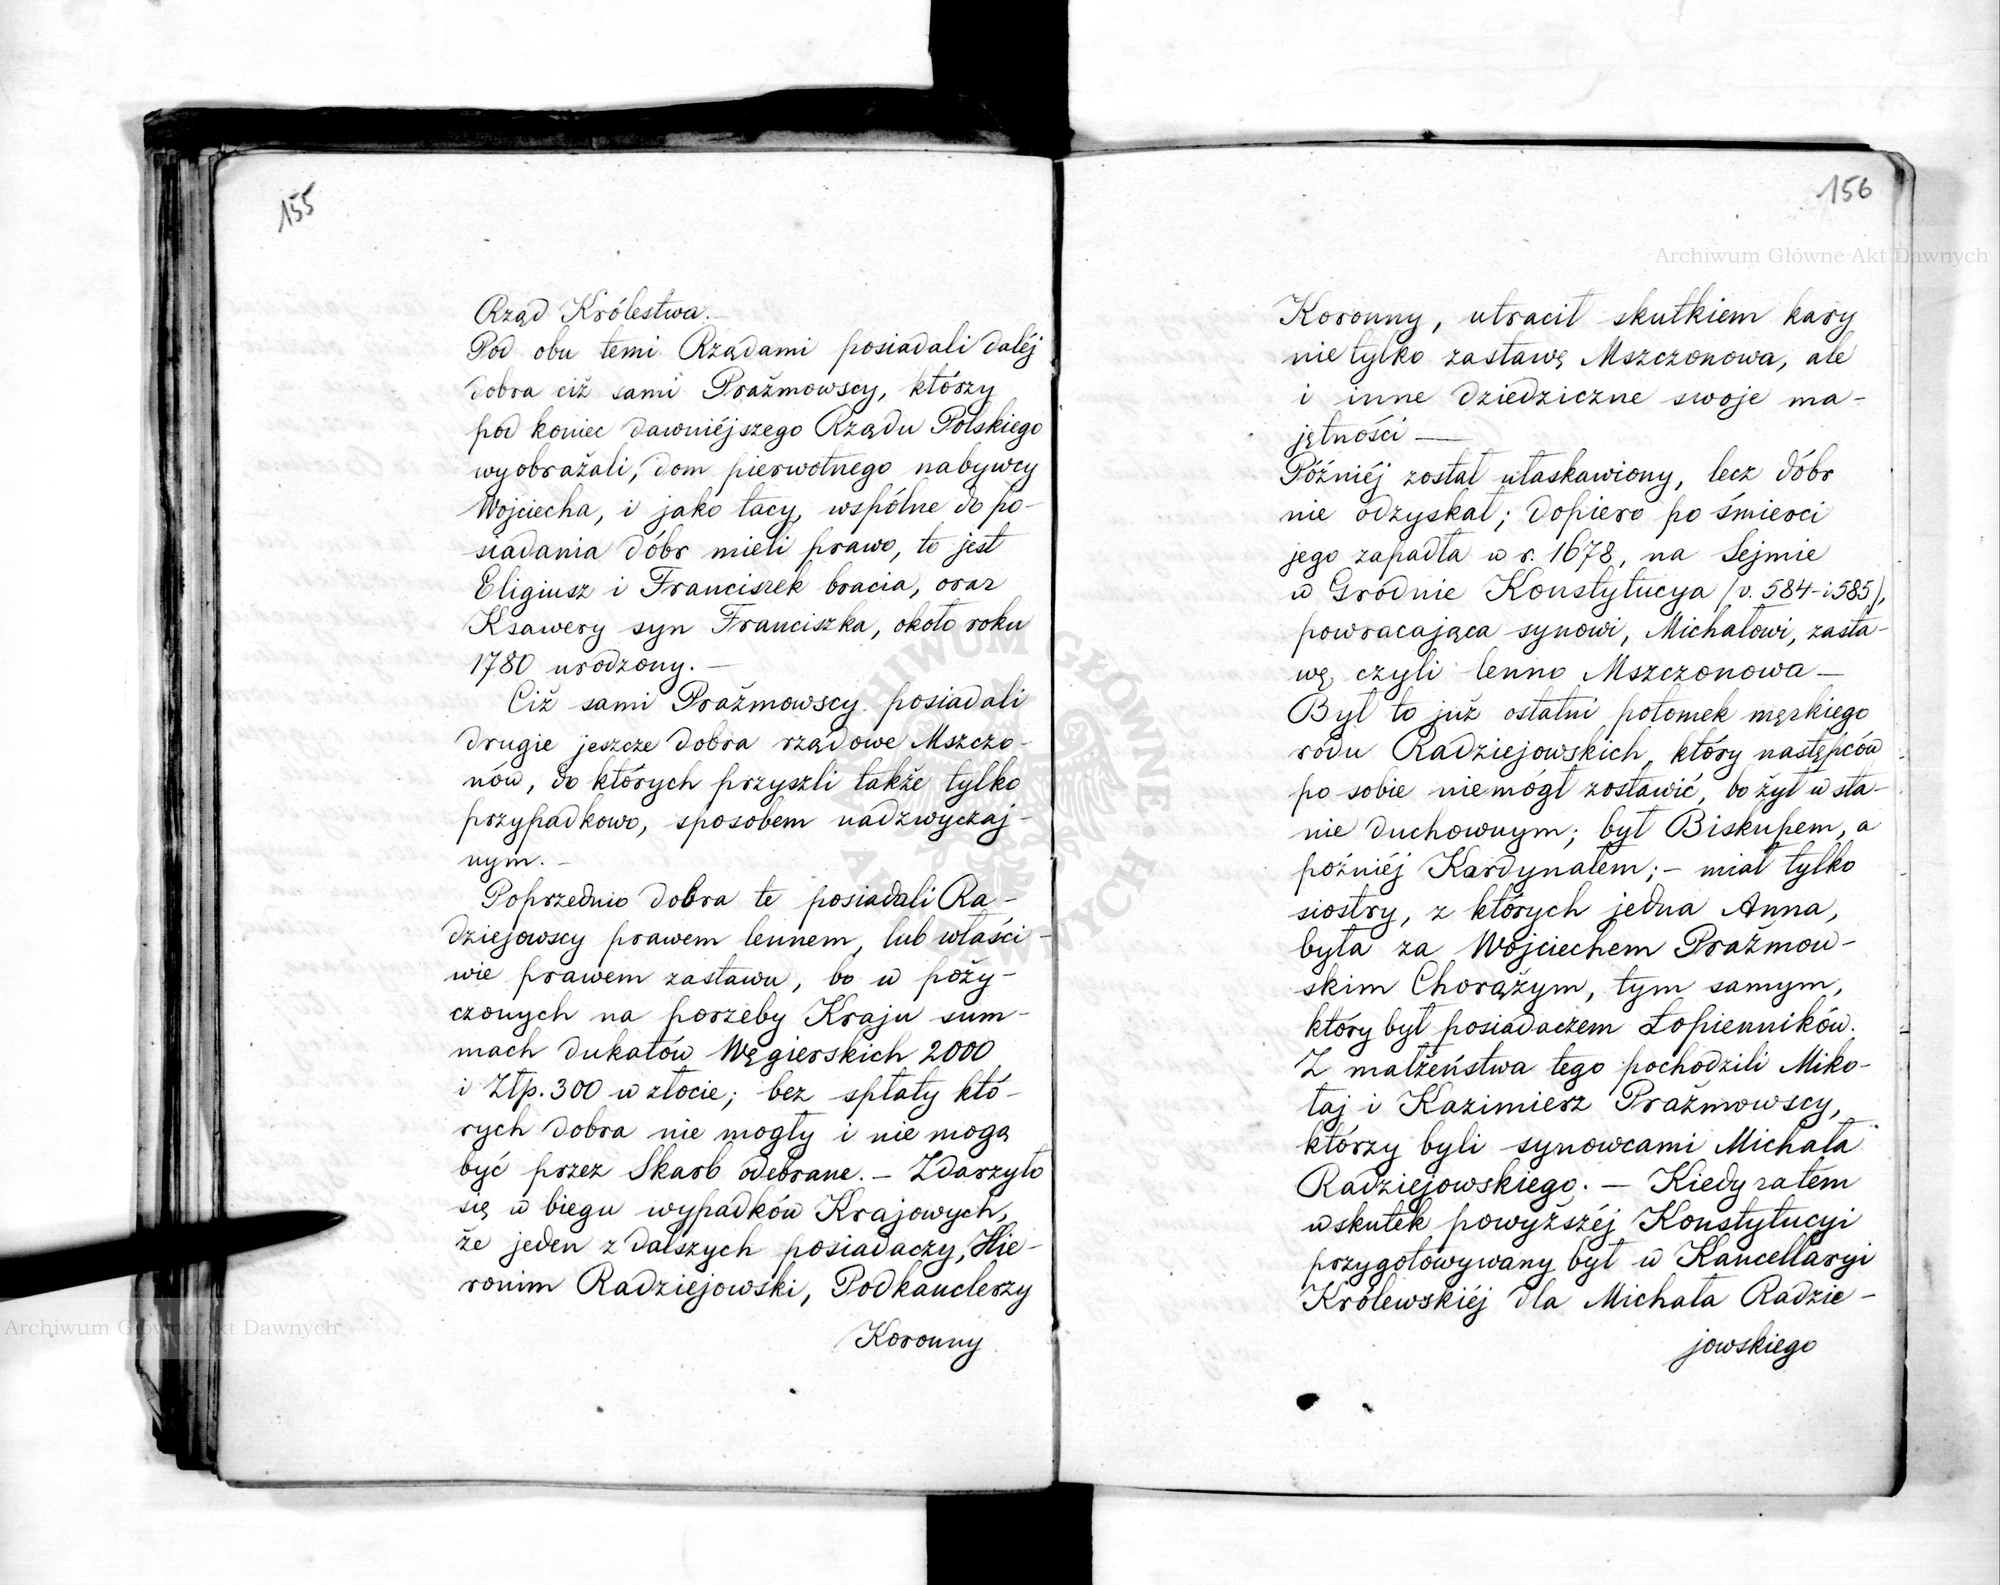 155
Rząd Królestwa.—
Pod obu temi Rządami posiadali daléj
dobra ciż sami Prażmowscy, którzy
pod koniec dawniéjszego Rządu Polskiego
wyobrażali, dom pierwotnego nabywcy
Wojciecha, i jako tacy, wspólne do po-
siadania dóbr mieli prawo, to jest
Eligiusz i Franciszek bracia, oraz
Ksawery syn Franciszka, około roku
1780 urodzony.—
Ciż sami Prażmowscy posiadali
drugie jeszcze dobra rządowe Mszczo-
nów, do których przyszli także tylko
przypadkowo, sposobem nadzwyczaj-
nym.—
Poprzednio dobra te posiadali Ra-
dziejowscy prawem lennem, lub właści-
wie prawem zastawu, bo w poży-
czonych na porzeby Kraju sum-
mach dukatów Węgierskich 2000
i Złp. 300 w złocie; bez spłaty któ-
rych dobra nie mogły i nie mogą
być przez Skarb odebrane.— Zdarzyło
się w biegu wypadków Krajowych,
że jeden z dalszych posiadaczy, Hie-
ronim Radziejowski, Podkanclerzy
Koronny
156
Koronny, utracił skutkiem kary
nie tylko zastawę Mszczonowa, ale
i inne dziedziczne swoje ma-
jętności—
Późniéj został ułaskawiony, lecz dóbr
nie odzyskał; dopiero po śmierci
jego zapadła w r. 1678, na Sejmie
w Grodnie Konstytucya (v. 584 i 585),
powracająca synowi, Michałowi, zasta-
wę, czyli lenno Mszczonowa—
Był to już ostatni potomek męzkiego
rodu Radziejowskich, który następców
po sobie niemógł zostawić, bo żył w sta-
nie duchownym; był Biskupem, a
pożniéj Kardynałem;— miał tylko
siostry, z których jedna Anna,
była za Wojciechem Prażmow-
skim Chorążym, tym samym,
który był posiadaczem Łopienników.
Z małżeństwa tego pochodzili Miko-
łaj i Kazimierz Prażmowscy,
którzy byli synowcami Michała
Radziejowskiego.— Kiedy zatem
wskutek powyższéj Konstytucyi
przygotowywany był w Kancellaryi
Królewskiéj dla Michała Radzie-
jowskiego
Archiwum Główne Akt Dawnych
Archiwum Główne Akt Dawnych
ARCHIWUM GŁÓWNE AKT DAWNYCH